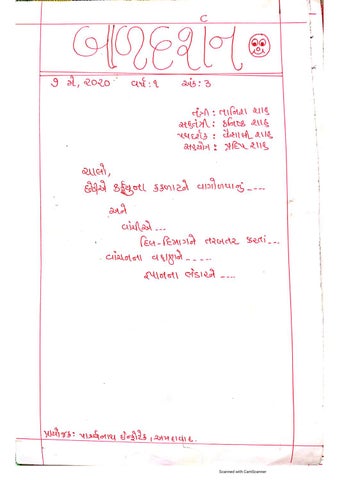 બાળદર્શન
૭ મે, ૨૦૨૦ વર્ષ:૧ અંક: ૩
તંત્રી : તાનિશા શાહ
સહતંત્રી : કનિષ્ક શાહ
પથદર્શક : વૈશાલી શાહ
સંયોજન : પ્રદિપ શાહ
ચાલો,
છોડીએ કર્ફ્યુના કકળાટને વાગોળવાનું ----
અને
વાંચીએ ...
દિલ-દિમાગને તરબતર કરતાં ...
વાંચનના વહાણને -----
જ્ઞાનના ભંડારને ----
પ્રાયોજક: પાર્શ્વનાથ ઇન્ફોટેક, અમદાવાદ.
Scanned with CamScanner